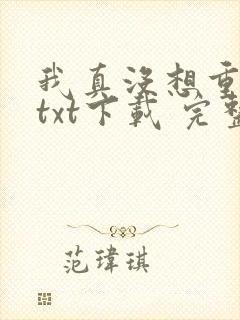 我真没想重
txt下載 完整
范瑋琪